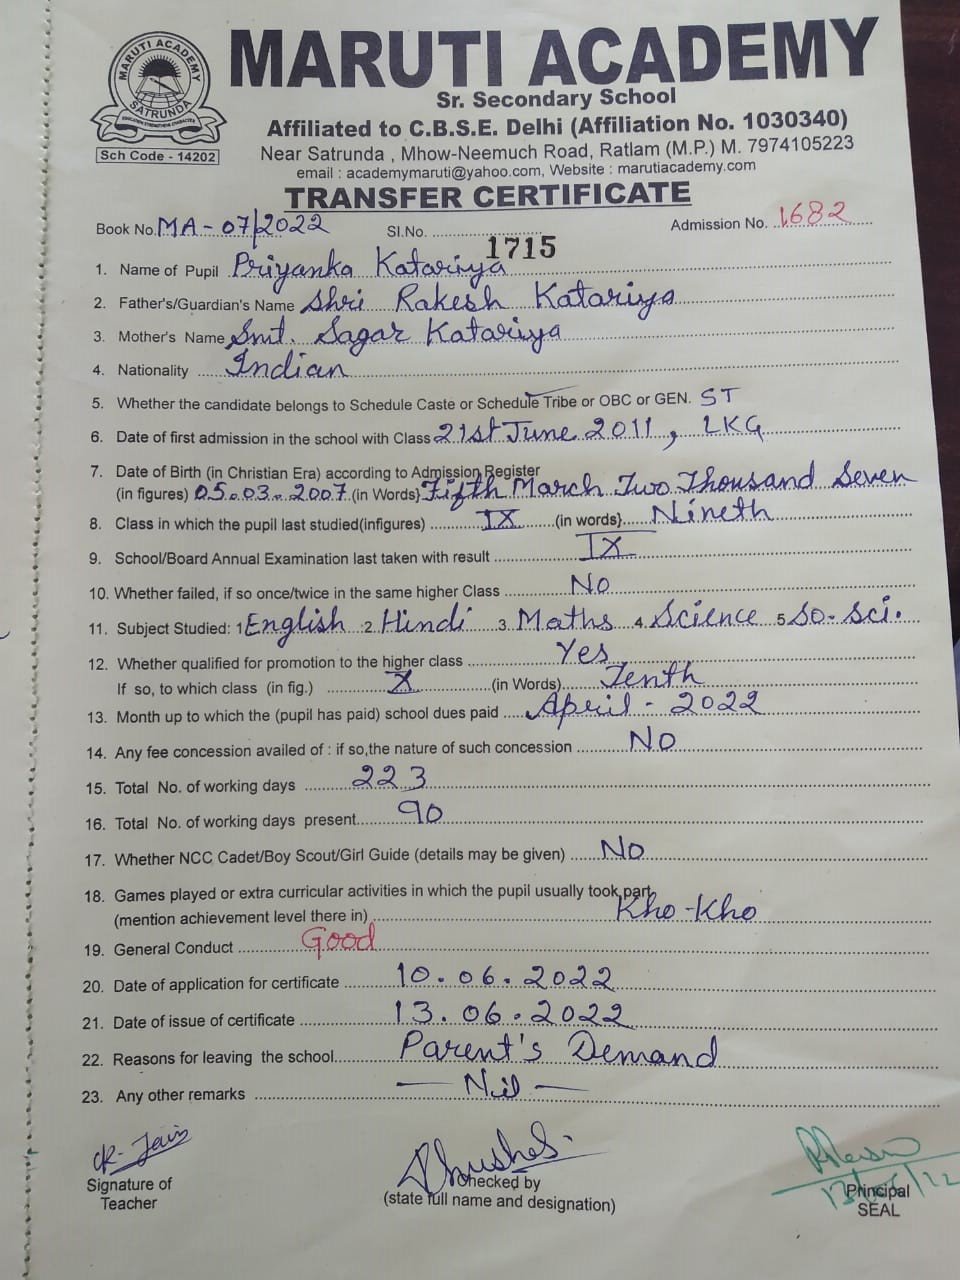 MARUTI ACADEMY
SATRUNDA
EDUCATION STRENGTHENS CHARACTER
Sch Code - 14202
MARUTI ACADEMY
Sr. Secondary School
Affiliated to C.B.S.E. Delhi (Affiliation No. 1030340)
Near Satrunda , Mhow-Neemuch Road, Ratlam (M.P.) M. 7974105223
email : academymaruti@yahoo.com, Website : marutiacademy.com
TRANSFER CERTIFICATE
Book No. MA - 07/2022 Sl.No. 1715 Admission No. 1682
1. Name of Pupil Priyanka Katariya
2. Father's/Guardian's Name Shri Rakesh Katariya
3. Mother's Name Smt. Sagar Katariya
4. Nationality Indian
5. Whether the candidate belongs to Schedule Caste or Schedule Tribe or OBC or GEN. ST
6. Date of first admission in the school with Class 21st June 2011, LKG
7. Date of Birth (in Christian Era) according to Admission Register
(in figures) 05.03.2007 (in Words} Fifth March Two Thousand Seven
8. Class in which the pupil last studied(infigures) IX (in words} Nineth
9. School/Board Annual Examination last taken with result IX
10. Whether failed, if so once/twice in the same higher Class No
11. Subject Studied: 1 English 2. Hindi 3. Maths 4. Science 5 So. Sci.
12. Whether qualified for promotion to the higher class Yes
If so, to which class (in fig.) X (in Words) Tenth
13. Month up to which the (pupil has paid) school dues paid April - 2022
14. Any fee concession availed of : if so,the nature of such concession No
15. Total No. of working days 223
16. Total No. of working days present 90
17. Whether NCC Cadet/Boy Scout/Girl Guide (details may be given) No
18. Games played or extra curricular activities in which the pupil usually took part
(mention achievement level there in) Kho-Kho
19. General Conduct Good
20. Date of application for certificate 10.06.2022
21. Date of issue of certificate 13.06.2022
22. Reasons for leaving the school Parent's Demand
23. Any other remarks — Nil —
Signature of
Teacher
Checked by
(state full name and designation)
13/06/22
Principal
SEAL